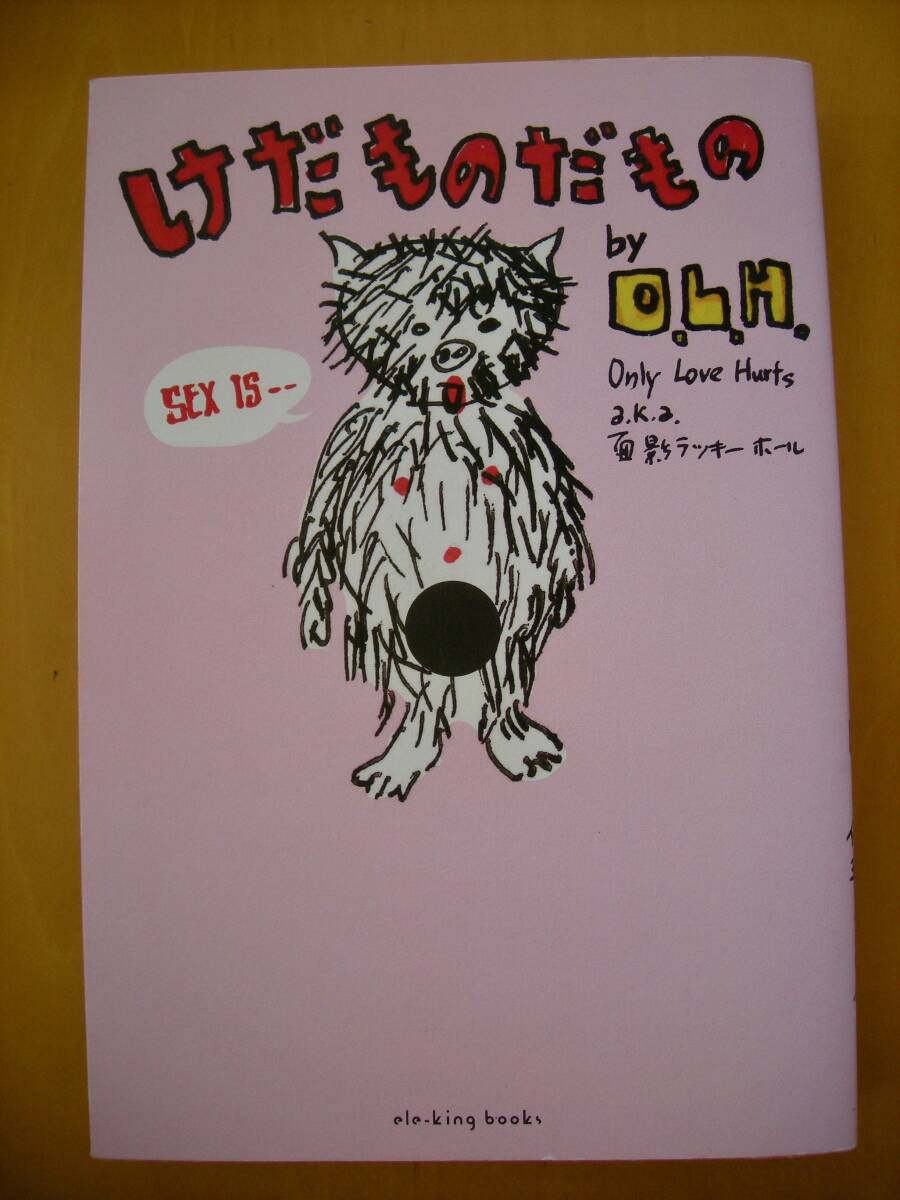 けだものだもの
by
O.L.H.
Only Love Hurts
a.k.a.
面影ラッキーホール
SEX IS--
ele-king books